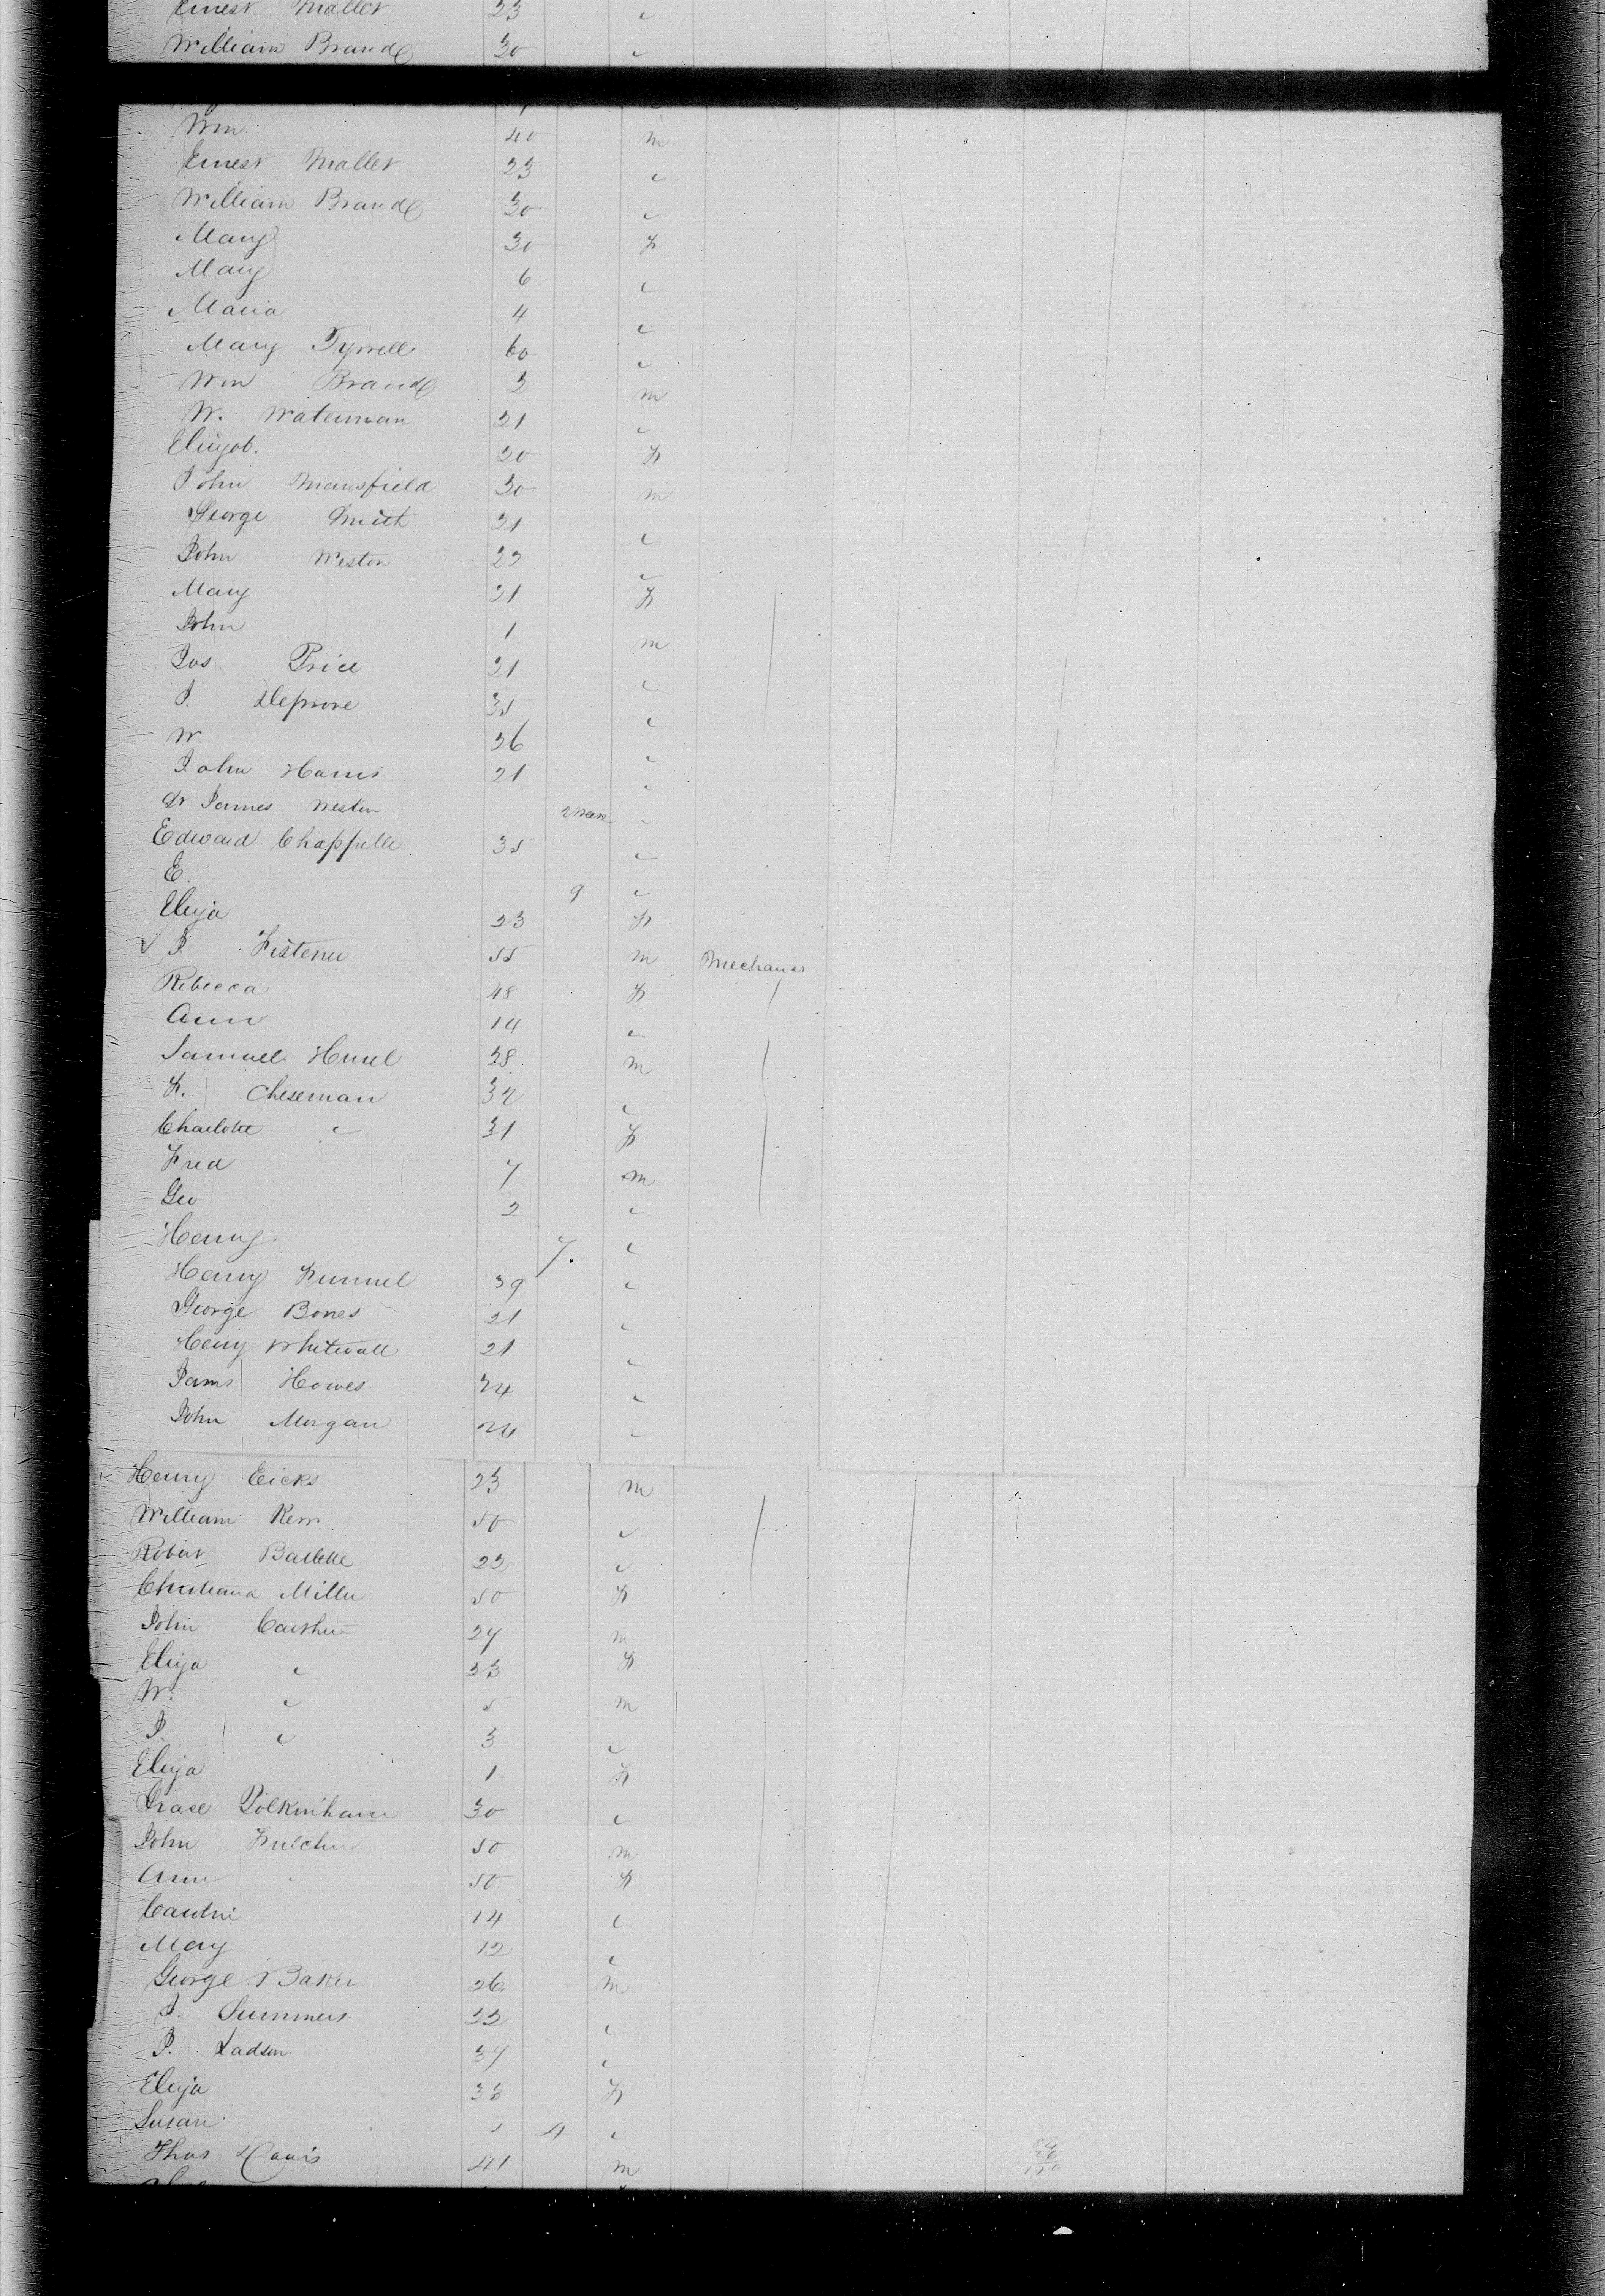 Ernest Mallet 23 "
William Brand 30 "
Wm 40 m
Ernest Mallet 23 "
William Brand 30 "
Mary 30 F
Mary 6 "
Maria 4 "
Mary Tyrrell 60 "
Wm Brand 2 m
W. Waterman 21 "
Elizab. 20 F
John Mansfield 30 m
George Smith 21 "
John Weston 22 "
Mary 21 F
John 1 m
Jos. Price 21 "
J. 35 "
W 26 "
John Harris 21 "
Dr James Weston "
Edward Chappelle 35 "
E. 9 "
Eliza 23 F
J. 55 m Mechanics
Rebecca 48 F
Ann 14 "
Samuel 38 m
F. Cheseman 32 "
Charlotte " 31 F
Fred 7 m
Geo 2 "
Henry 7. "
Henry Funnel 39 "
George Bones 21 "
Henry Whitwall 21 "
James Howes 24 "
John Morgan 24 "
Henry Eicks 23 m
William Kerr 50 "
Robert 22 "
Christiana Miller 50 F
John 27 m
Eliza " 23 F
W. " 5 m
J. " 3 "
Eliza 1 F
Grace Polkinham 30 "
John Fulcher 50 m
Ann " 50 F
14 "
Mary 12 "
George Baker 26 m
J. Summers 22 "
J. Ladson 37 "
Eliza 33 F
Susan 1 4 "
Thos Davis 41 m
84
26
110